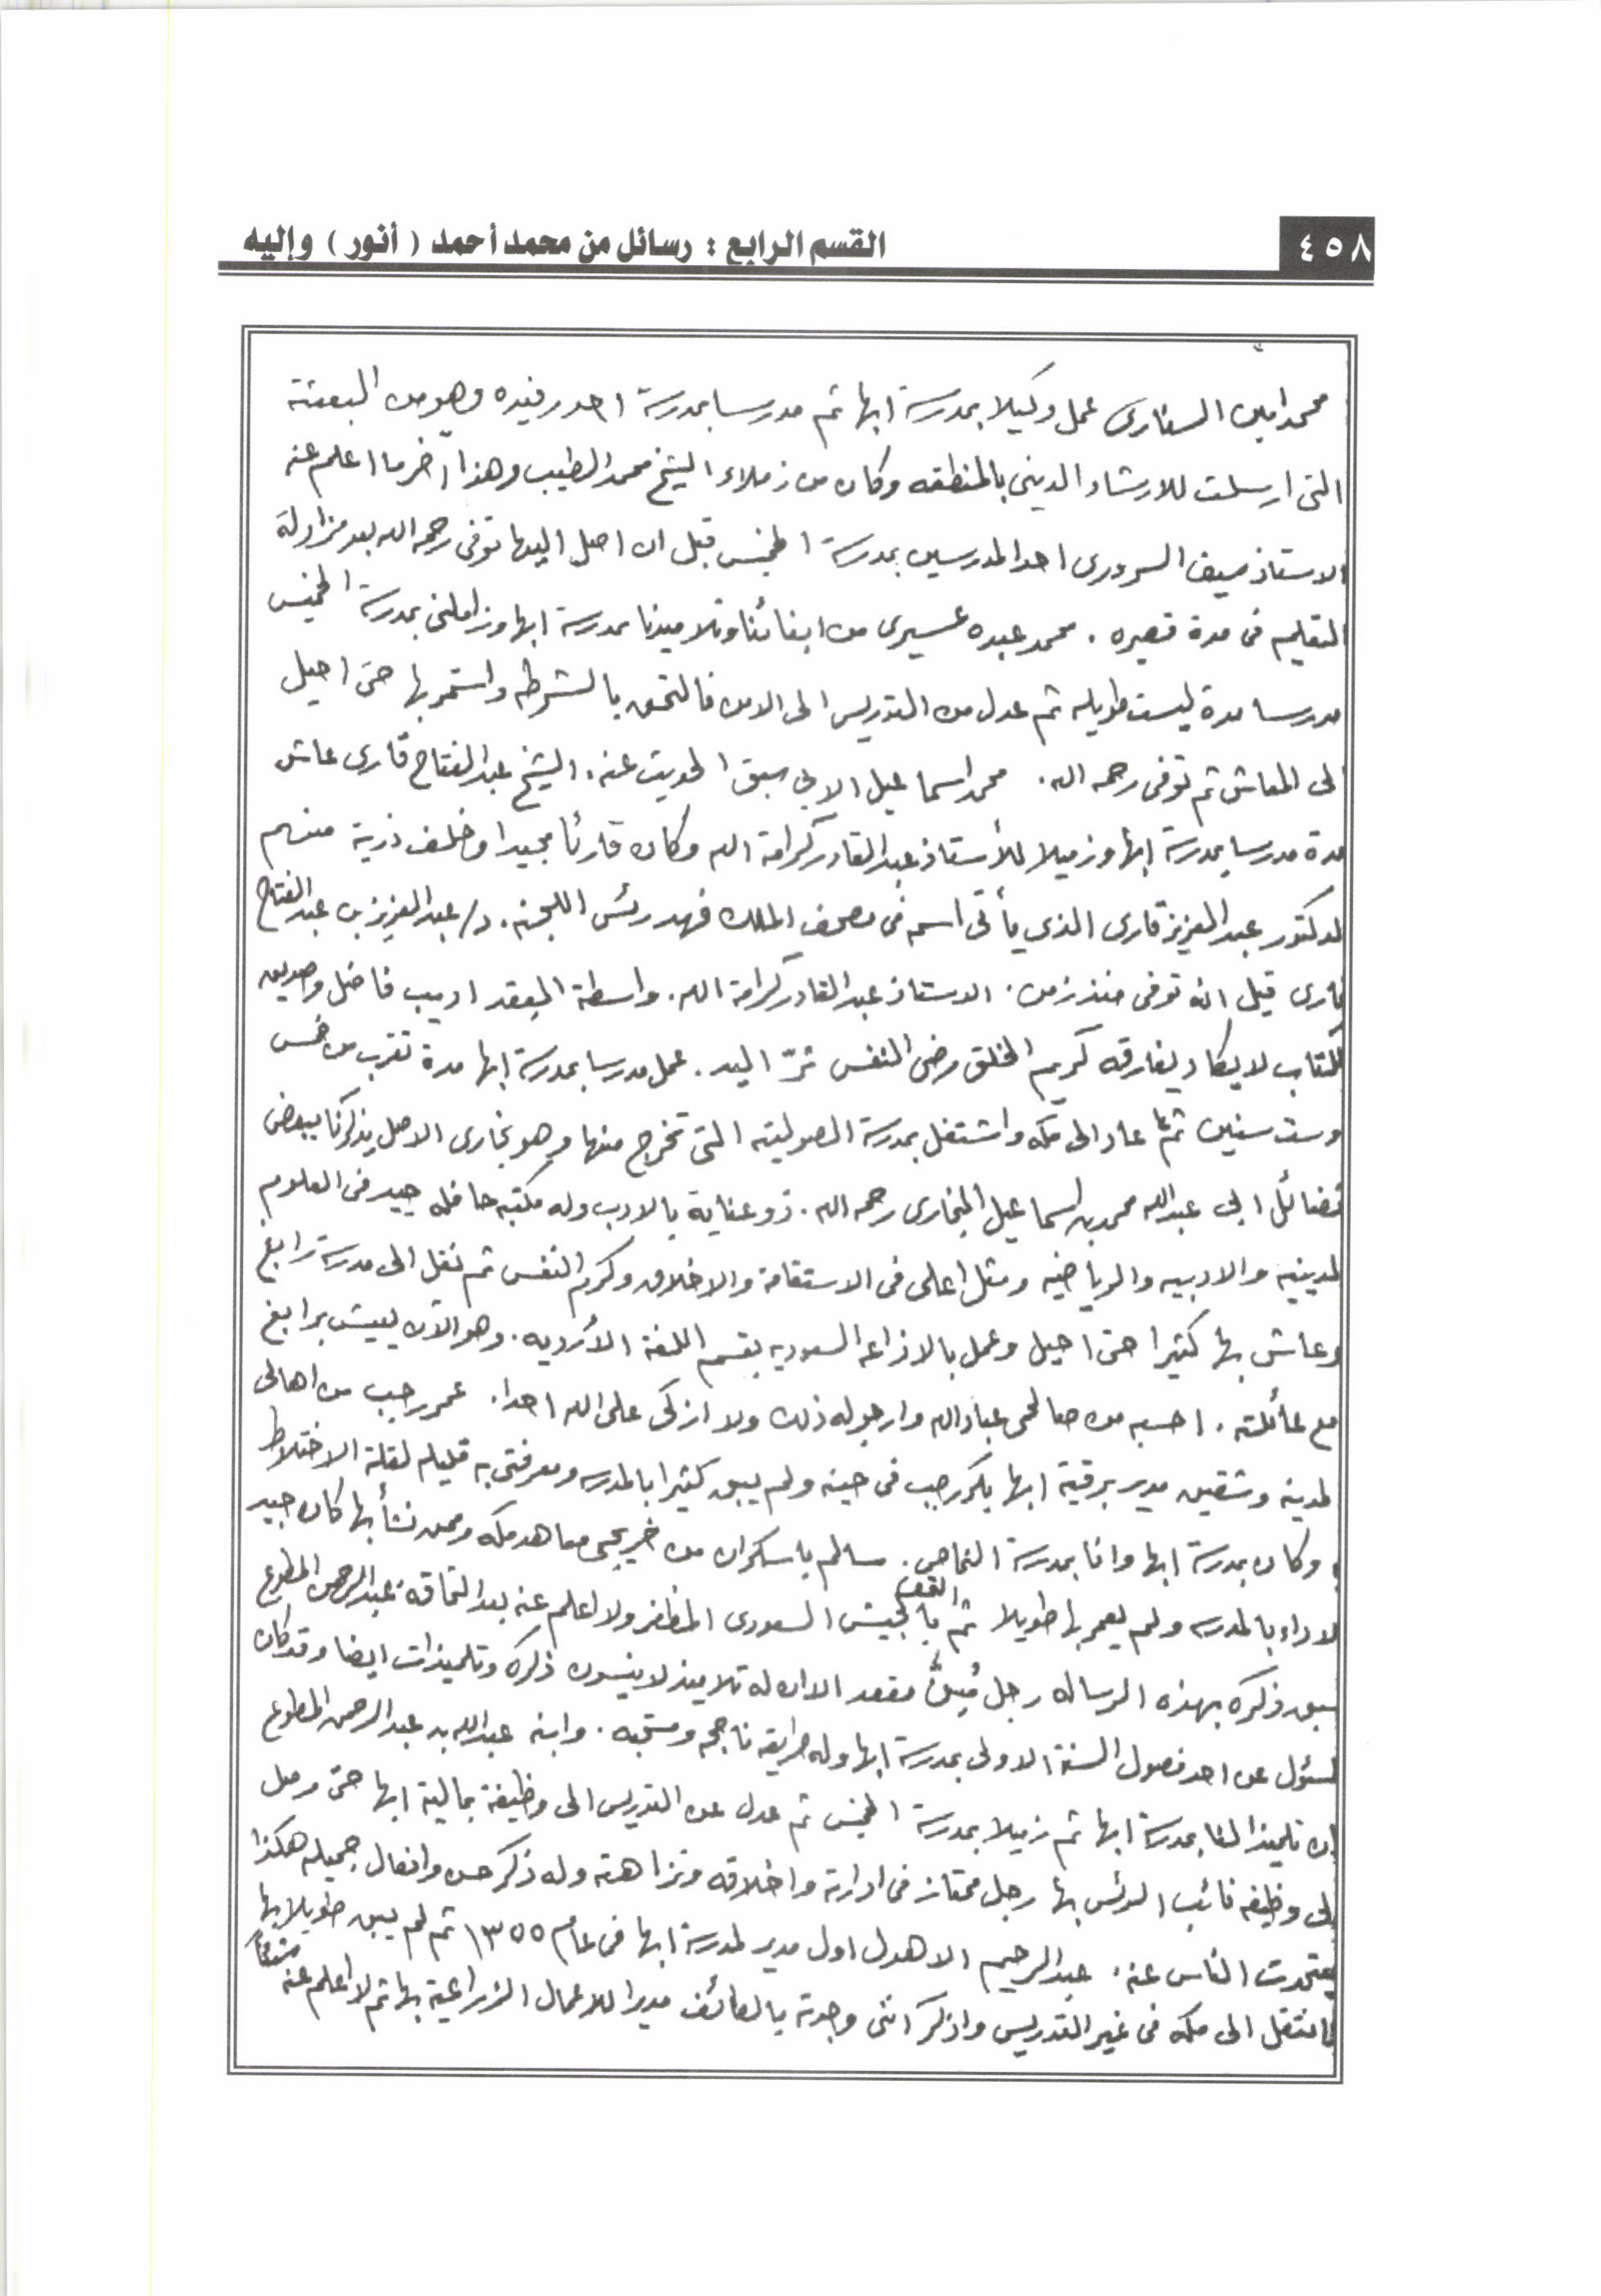 ٤٥٨
القسم الرابع : رسائل من محمد أحمد ( أنور ) وإليه
محمد امين السنارى عمل وكيلا بمدرسة ابها ثم مدرسا بمدرسة احد رفيده وهو من البعثة
التى ارسلت للارشاد الدينى بالمنطقه وكان من زملاء الشيخ محمد الطيب وهذا آخر ما اعلم عنه
الاستاذ سيف السرورى احد المدرسين بمدرسة الخميس قبل ان اصل اليها توفى رحمه الله بعد مزاولة
التعليم فى مدة قصيره . محمد عبده عسيرى من ابنائنا وتلاميذنا بمدرسة ابها وزاملنى بمدرسة الخميس
مدرسا مدة ليست طويله ثم عدل من التدريس الى الامن فالتحق بالشرطه واستمر بها حتى احيل
الى المعاش ثم توفى رحمه الله . محمد اسماعيل الابى سبق الحديث عنه . الشيخ عبد الفتاح قارى عاش
مدة مدرسا بمدرسة ابها وزميلا للأستاذ عبد القادر كرامة الله وكان قارئا مجيدا وخلف ذرية منهم
لدكتور عبد العزيز قارى الذي يأتى اسمه فى مصحف الملك فهد رئس اللجنه . د/ عبد العزيز بن عبد الفتاح
قارى قيل انه توفى منذ زمن . الاستاذ عبد القادر كرامة الله . واسطة العقد اديب فاضل وصديق
للكتاب لا يكاد يفارقه كريم الخلق رضى النفس ثرّ اليد . عمل مدرسا بمدرسة ابها مدة تقرب من خمس
وست سنين ثم عاد الى مكه واشتغل بمدرسة الصولتيه التى تخرج منها وهو بخارى الاصل يذكرنا ببعض
فضائل ابى عبد الله محمد بن اسماعيل البخارى رحمه الله . ذو عناية بالادب وله مكتبه حافله جيد فى العلوم
لدينيه والادبيه والرياضيه ومثل اعلى فى الاستقامة والاخلاق وكرم النفس ثم نقل الى مدرسة رابغ
وعاش بها كثيرا حتى احيل وعمل بالاذاعه السعوديه بقسم اللغة الأرديه . وهو الآن يعيش برابغ
مع عائلته . احسبه من صالحى عباد الله وارجو له ذلك ولا ازكى على الله احدا . عمر رجب من اهالى
لمدينه وشقيق مدير برقية ابها بكر رجب فى حينه ولم يبق كثيرا بالمدرسه ومعرفتى به قليله لقلة الاختلاط
وكان بمدرسة ابها وانا بمدرسة النماص . سالم باسكران من خريجى معاهد مكه وممن نشأ بها كان جيد
لاداء بالمدرسه ولم يعمر بها طويلا ثم التحق بالجيش السعودى المظفر ولا اعلم عنه بعد التحاقه . عبد الرحمن المطوع
سبق ذكره بهذه الرساله رجل مقعد الا ان له تلاميذ لا ينسون ذكره وتلميذات ايضا وقد كان
لسئول عن احد فصول السنة الاولى بمدرسة ابها وله طريقه ناجحه ومستحبه . وابنه عبد الله بن عبد الرحمن المطوع
ان تلميذا لنا بمدرسة ابها ثم زميلا بمدرسة الخميس ثم عدل عن التدريس الى وظيفة بمالية ابها حتى وصل
الى وظيفه نائب الرئس بها رجل ممتاز فى ادارته واخلاقه ونزاهته وله ذكر حسن وافعال جميله هكذا
يتحدث الناس عنه . عبد الرحيم الاهدل اول مدير لمدرسة ابها فى عام ١٣٥٥ ثم لم يبق طويلا بها
فانتقل الى مكه فى غير التدريس واذكر اننى وجدته بالطائف مديرا للاعمال الزراعية بها ثم لا اعلم عنه شيئا